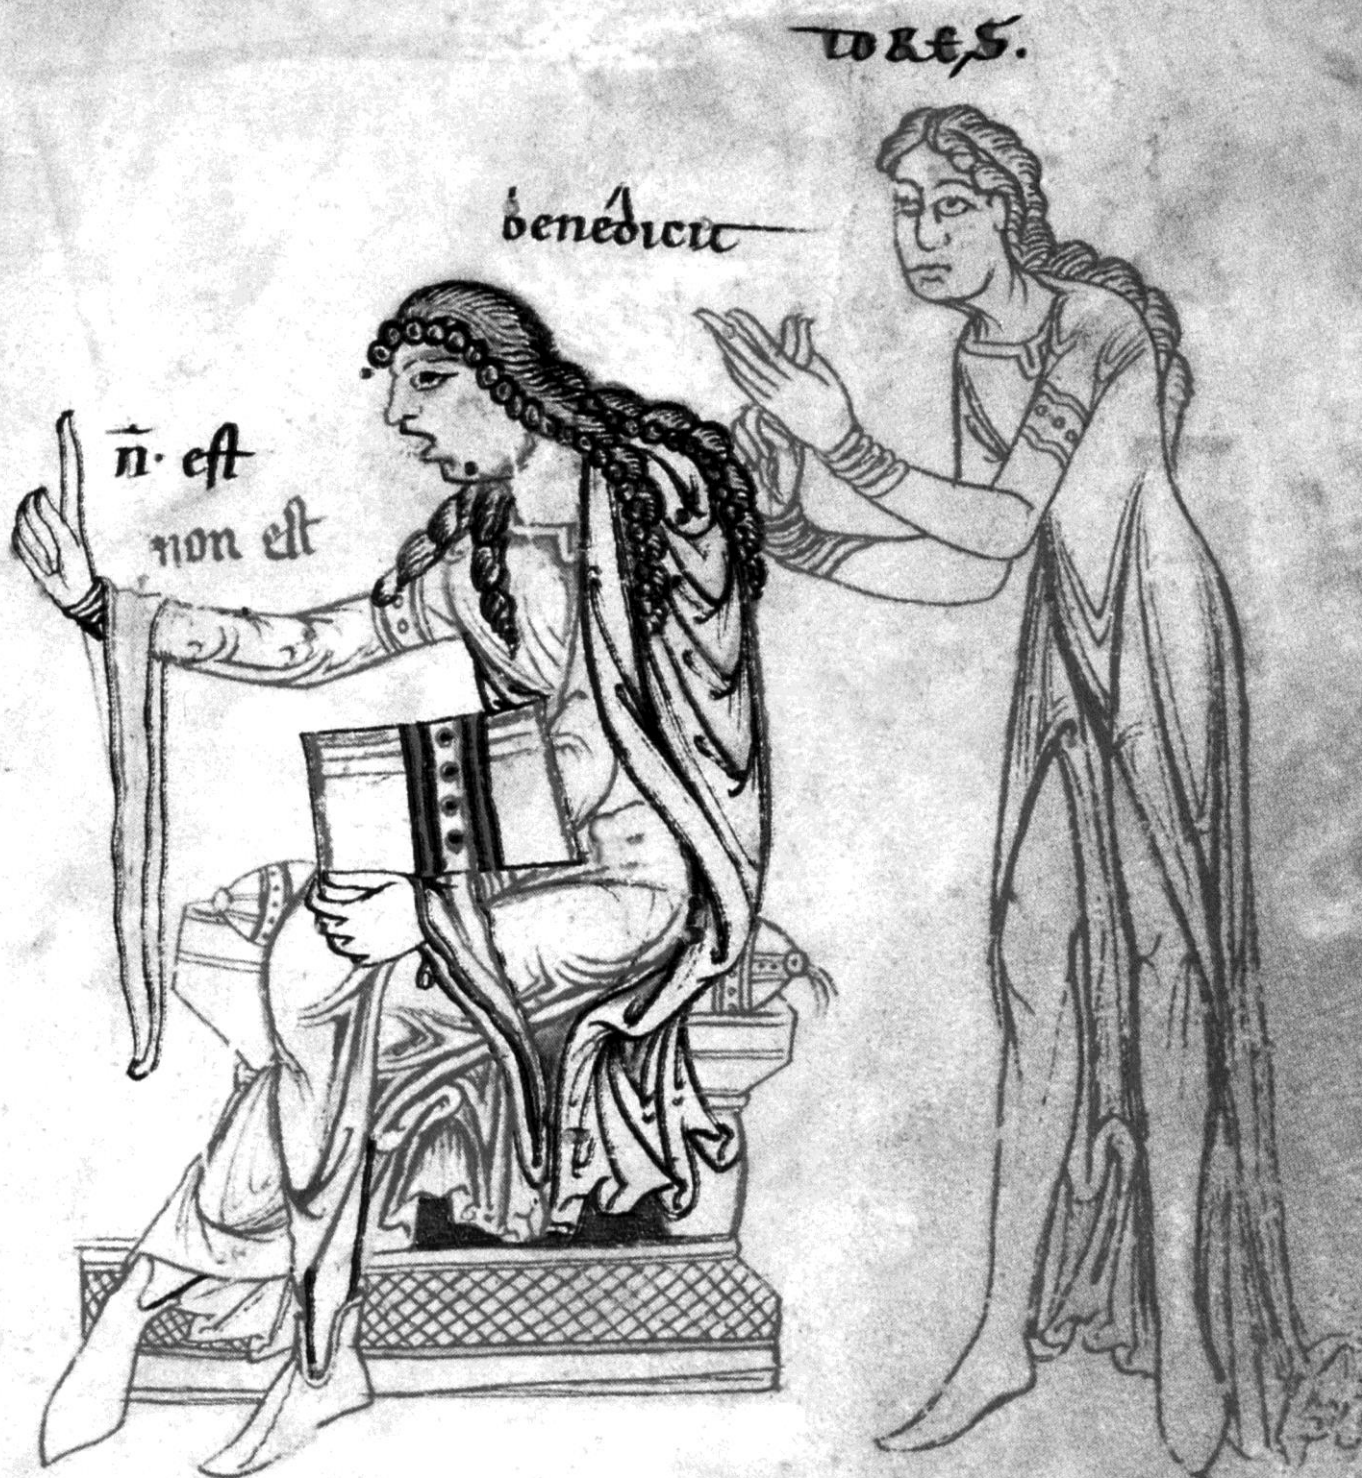 TORES.
benedicit
n̄. est
non est